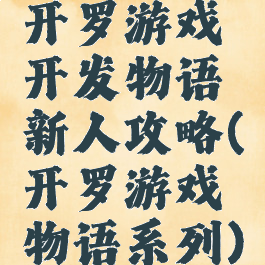 开罗游戏
开发物语
新人攻略(
开罗游戏
物语系列)